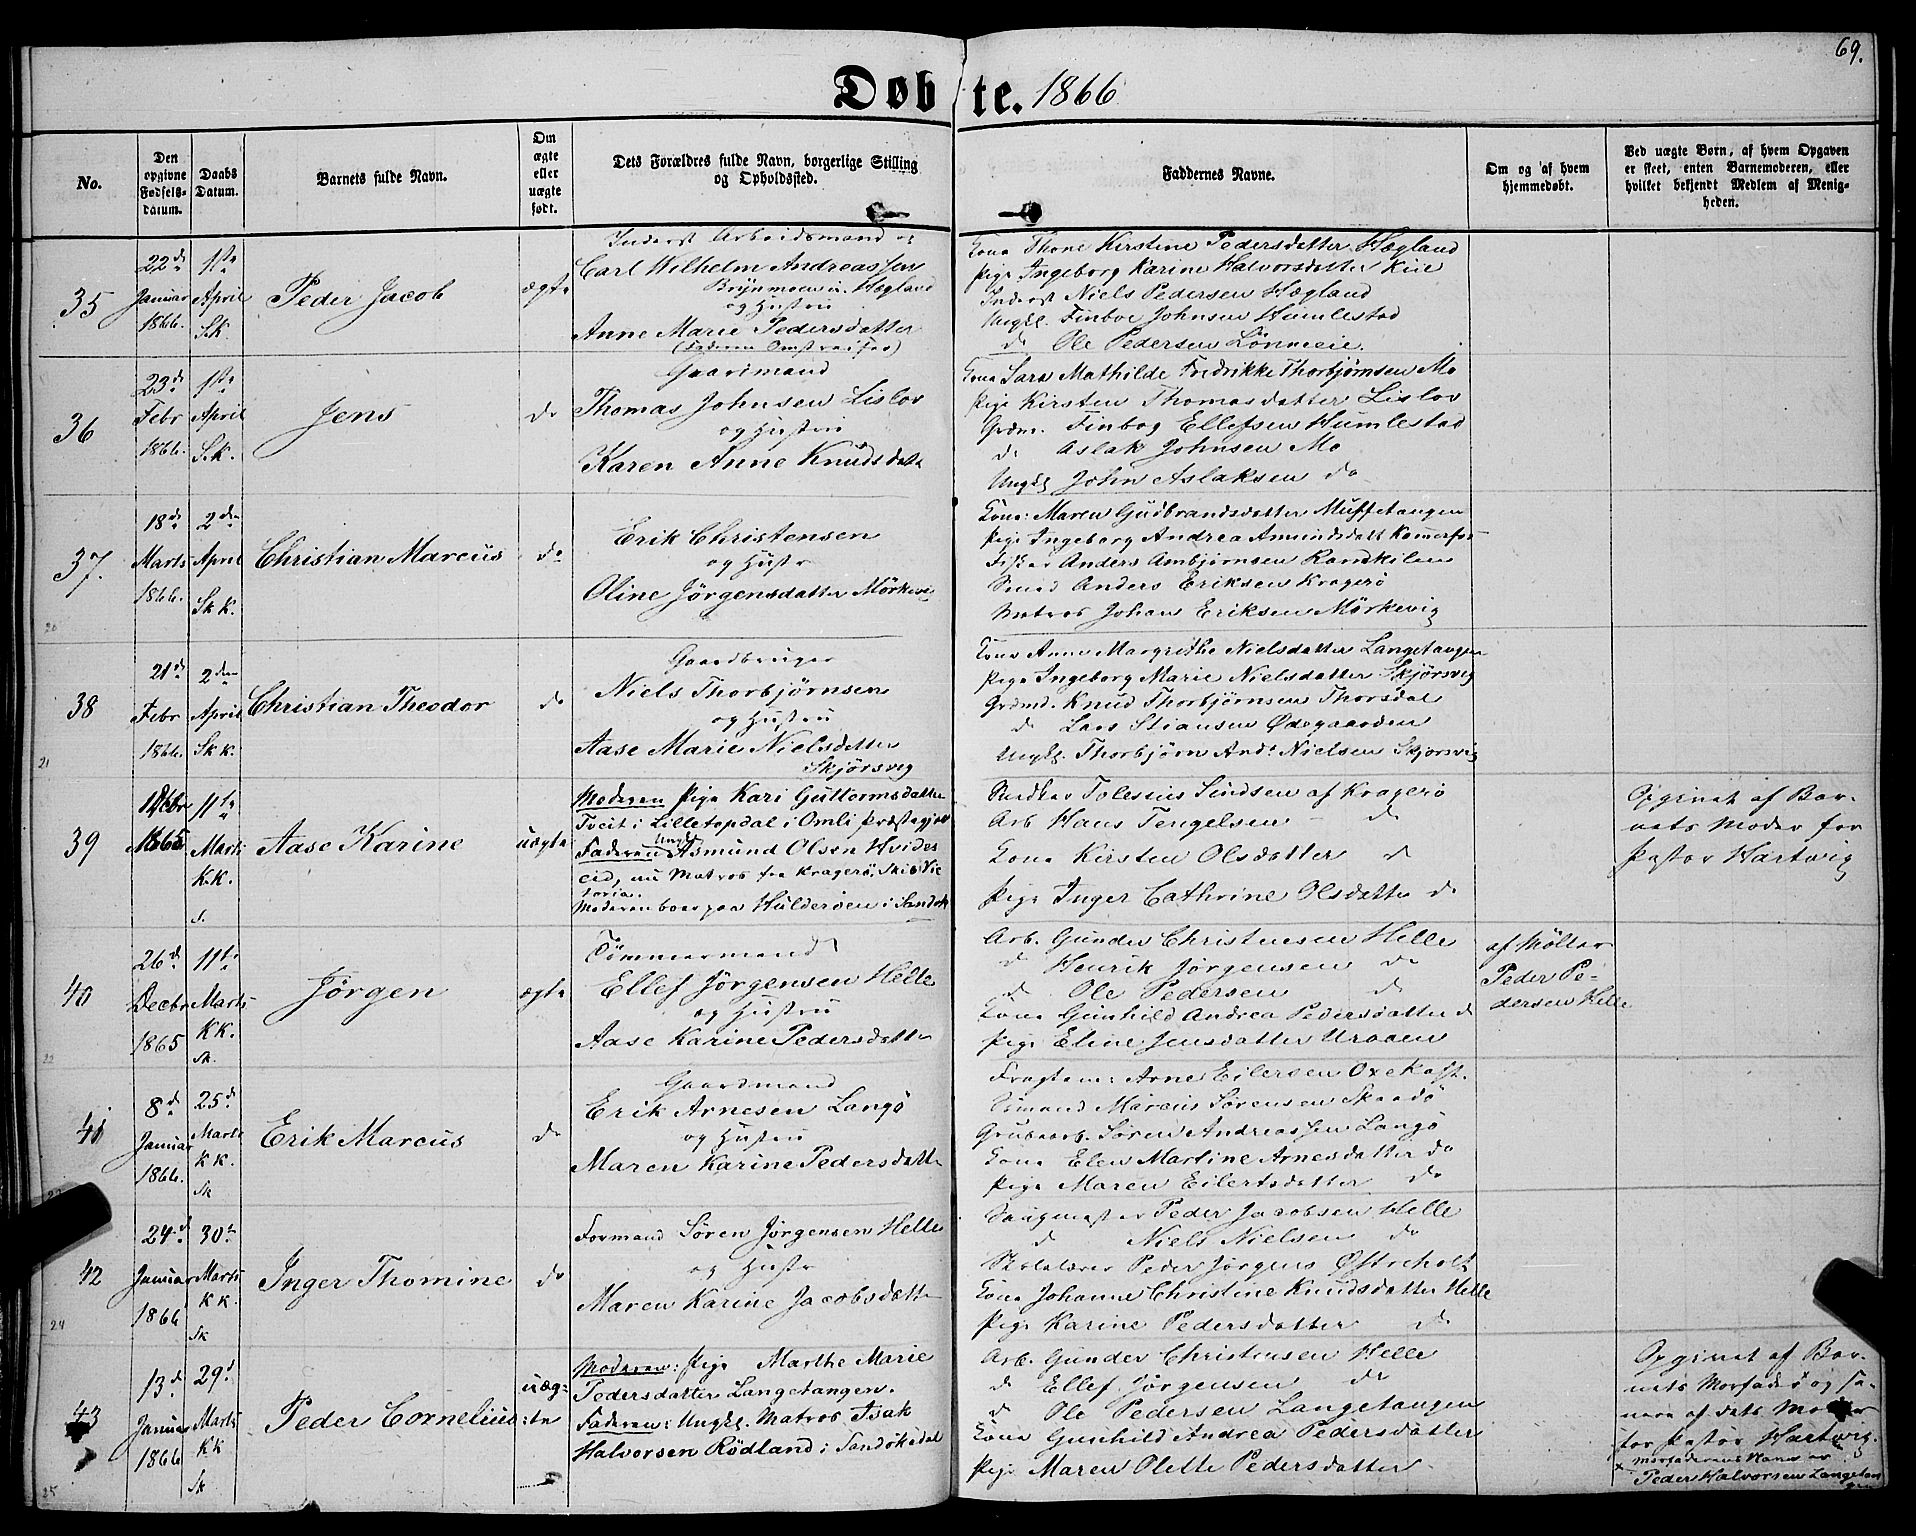 69.
Døbte. 1866
No.
Den opgivne Fødselsdatum.
Daabs Datum.
Barnets fulde Navn.
Om ægte eller uægte født.
Dets Forældres fulde Navn, borgerlige Stilling og Opholdssted.
Faddernes Navne.
Om og af hvem hjemmedøbt.
Ved uægte Børn, af hvem Opgaven er skeet, enten Barnemoderen, eller hvilket bekjendt Medlem af Menigheden.
35
22de Januar 1866.
1ste April S.k.
Peder Jacob
ægte
Inderst Arbeidsmand
Carl Wilhelm Andreassen
Hægland
og Hustru
Anne Marie Pedersdatter
Kona Thone Kirstine Pedersdatter Hægland
Pige Ingeborg Karine Halvorsdatter
Inderst Niels Pedersen Hægland
Ungkl. Finboe Johnsen Humlestad
do Ole Pedersen
36
23de Febr 1866.
1ste April S.k.
Jens
do
Gaardmand
Thomas Johnsen Lislov
og Hustru
Karen Anne Knudsdatt
Kona Sara Mathilde Fredrikke Thorbjørnsen Mo
Pige Kirsten Thomasdatter Lislov
Grdm. Finbog Ellefsen Humlestad
do Aslak Johnsen Mo
Ungkl John Aslaksen do
37.
18de Marts 1866.
2den April Sk k.
Christian Marcus
do
Erik Christensen
og Hustr
Oline Jørgensdatter Mörkevig
Kona: Maren Gudbrandsdatter Muffetangen
Pige Ingeborg Andrea Amundsdatt
Fisker Anders Ambjørnsen
Smed Anders Eriksen Kragerø
Matros Johan Eriksen Mörkevig
20
38
21de Febr 1866.
2den April Sk k.
Christian Theodor
do
Gaardbruger
Niels Thorbjörnsen
og Hustru
Aase Marie Nielsdatter
Skjörsvig
Kona Anne Margrethe Nielsdatter Langetangen
Pige Ingeborg Marie Nielsdatter Skjörsvig
Grdmd. Knud Thorbjørnsen Thorsdal
do Lars Stiansen Ødegaarden
Ungkl. Thorbjørn Andr Nielsen Skjorsvig
21
39
1865
11te Marts K.K.
s.
Aase Karine
uægte
Moderen Pige Kari Guttormsdatter
Tveit i Lilletopdal i Omli Præstegj
Faderen Ungk Asmund Olsen Hvides
eid, nu Matros fra Kragerö, Skib Vic
toria.
Moderen boer paa Hulderöen i Sandök
Tolesius Sindsen af Kragerö
Arb Hans Tengelsen do
Kona Kirsten Olsdatter do
Pige Inger Cathrine Olsdatter do
Opgivet af Bar-
nets Moder for
Pastor Hartvig
40
26de Decbr 1865
11te Marts KK.
Sk.
Jörgen
ægte
Tömmermand
Ellef Jörgensen Helle
og Hustru
Aase Karine Pedersdatter
Arb. Gunder Christensen Helle
do Henrik Jørgensen do
do Ole Pedersen do
Kona Gunhild Andrea Pedersdatter d
Pige Eline Jensdatter Uraaen
af Möller
Peder Pe-
dersen Helle
22
41
8de Januar 1866.
25de Marts KK.
Sk
Erik Marcus
do
Gaardmand
Erik Arnesen Langö
og Hustru
Maren Karine Pedersdatte
Arne Eilersen
Sömand Marcus Sørensen Skaadö
Grubearb. Sören Andreassen Langö
Kona Elen Martine Arnesdatter do
Pige Maren Eilertsdatter do
23
42
24de Januar 1866
30te Marts KK.
Sk
Inger Thomine
do
Formand Sören Jörgensen Helle
og Hustr
Maren Karine Jacobsdatte
Saugmester Peder Jacobsen Helle
d Niels Nielsen do
Skolelærer Peder Jörgens Østreholt
Kona Johanne Christine Knudsdatter Helle
Pige Karine Pedersdatter do
24
43
13de Januar 1866
29de Marts KK
Sk
Peder Cornelius
uæg-
te
Moderen: Pige Marthe Marie
Pedersdatter Langetangen.
Faderen: Ungkl. Matros Isak
Halvorsen Rödland i Sandökedal
Arb. Gunder Christensen Helle
d Ellef Jörgensen do
d Ole Pedersen Langetangen
Kona Gunhild Andrea Pedersdatter
Pige Maren Olette Pedersdatter
Opgivet af Bar-
nets Morfader og se-
nere af dets Moder
for Pastor Hartvig.
x Morfaderens Navn er
Peder Halvorsen Langetan
gen
25